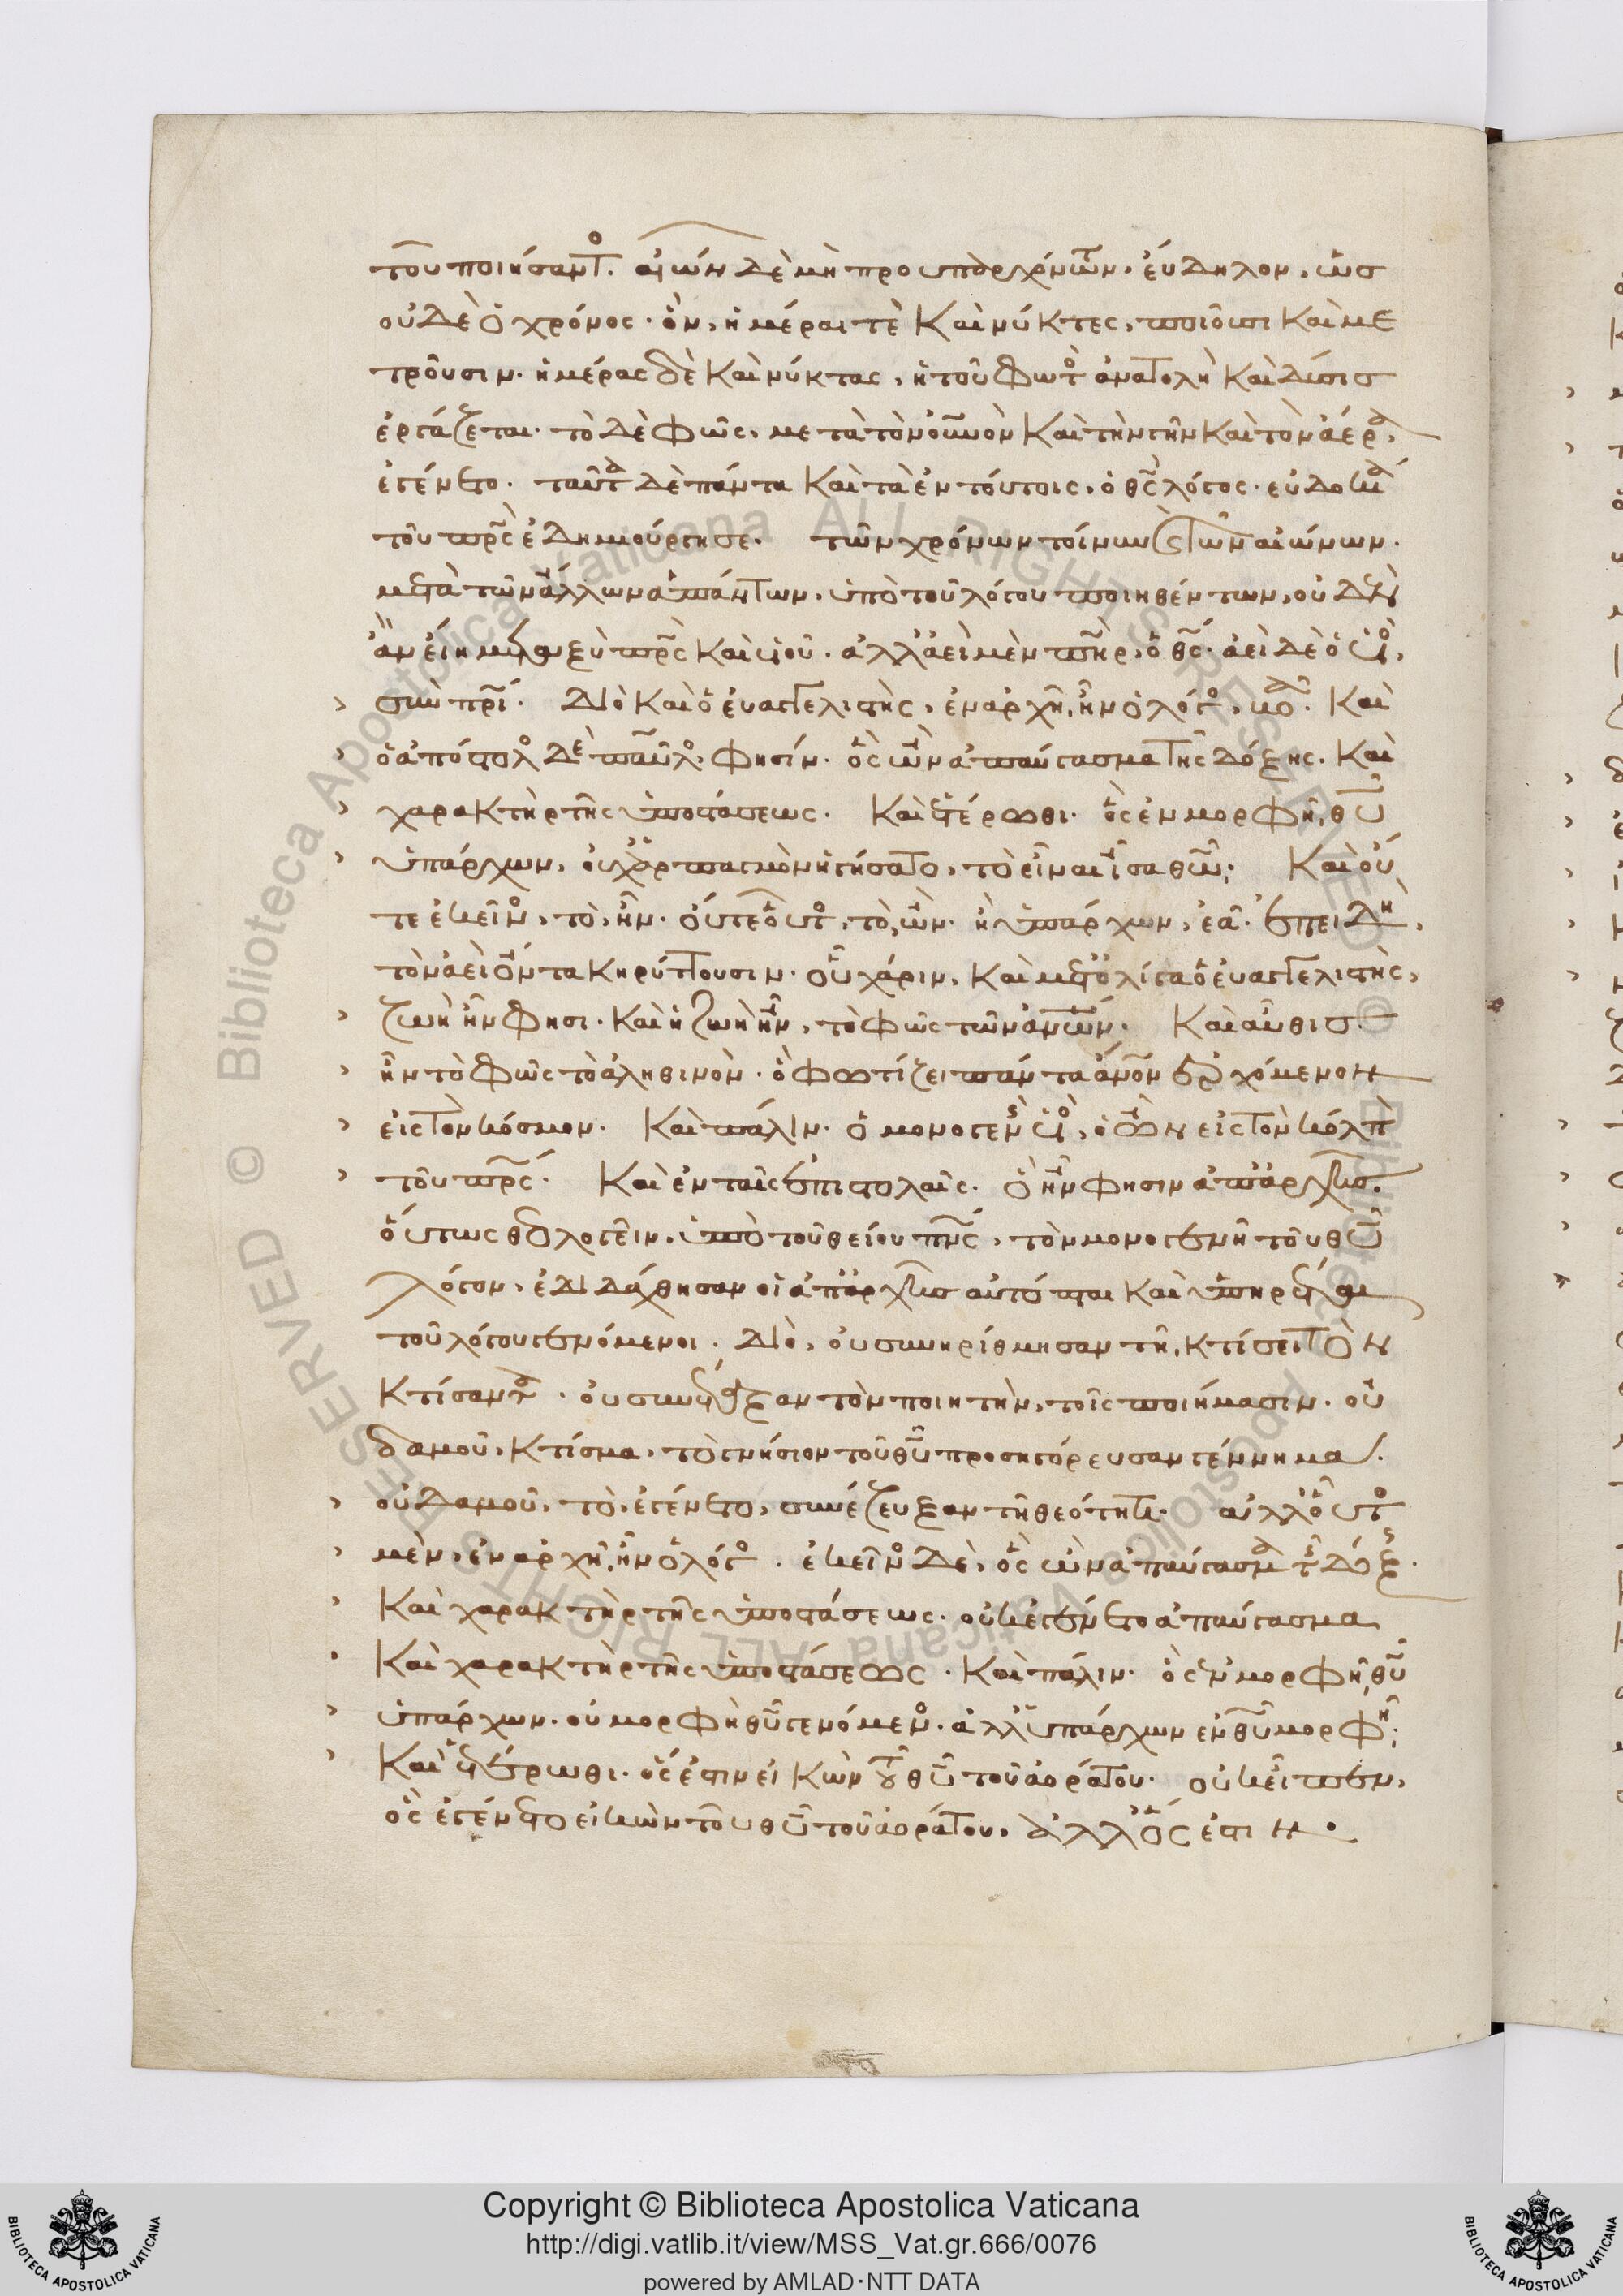 τοῦ ποιήσαντος. αἰώνων δὲ μὴ προϋπαρχόντων. εὔδηλον, ὡς
οὐδὲ ὁ χρόνος. ὃν, ἡμέραι τὲ καὶ νύκτες, ποιοῦσι καὶ με
τροῦσιν. ἡμέρας δὲ καὶ νύκτας, ἡ τοῦ φωτὸς ἀνατολὴ καὶ δύσις
ἐργάζεται. τὸ δὲ φῶς, μετὰ τὸν οὐνον καὶ τὴν γῆν καὶ τὸν ἀέρα,
ἐγένετο. ταῦτα δὲ πάντα καὶ τὰ ἐν τούτοις, ὁ θς λόγος. εὐδοκίᾳ
τοῦ πρς ἐδημιούργησε. τῶν χρόνων τοίνυν καὶ τῶν αἰώνων.
μετὰ τῶν ἄλλων ἁπάντων, ὑπὸ τοῦ λόγου ποιηθέντων, οὐδὲν
ἂν εἴη μεταξὺ πρς καὶ υἱοῦ. ἀλλ' ἀεὶ μὲν πηρ, ὁ θς. ἀεὶ δὲ ὁ υἱὸς,
σὺν πρι. Διὸ καὶ ὁ εὐαγγελιστὴς, ἐν ἀρχῇ, ἦν ὁ λόγος, βοᾷ. καὶ
ὁ ἀπόστολος δὲ παῦλος φησίν. ὃς ὢν ἀπαύγασμα τῆς δόξης. καὶ
χαρακτὴρ τῆς ὑποστάσεως. καὶ ἑτέρωθι. ὃς ἐν μορφῇ, θυ
ὑπάρχων, οὐχ ἁρπαγμὸν ἡγήσατο, τὸ εἶναι ἶσα θω. καὶ οὔ
τε ἐκεῖνος, τὸ, ἦν. οὔτε οὗτος, τὸ, ὢν. ἢ ὑπάρχων, ἐᾷ. ἐπειδὴ,
τὸν ἀεὶ ὄντα κηρύττουσιν. οὗ χάριν, καὶ μετ' ὀλίγα ὁ εὐαγγελιστὴς,
ζωὴ ἦν φησι. καὶ ἡ ζωὴ ἦν, τὸ φῶς τῶν ἀνων. καὶ αὖθις.
ἦν τὸ φῶς τὸ ἀληθινὸν. ὃ φωτίζει πάντα ἄνον ἐρχόμενον
εἰς τὸν κόσμον. καὶ πάλιν. ὁ μονογενὴς υἱὸς, ὁ ὢν εἰς τὸν κόλπον
τοῦ πρς. καὶ ἐν ταῖς ἐπιστολαῖς. ὃ ἦν φησιν ἀπ' ἀρχῆς.
οὕτως θεολογεῖν. ὑπὸ τοῦ θείου πνς, τὸν μονογενῆ τοῦ θυ
λόγον, ἐδιδάχθησαν οἱ ἀπ' ἀρχῆς αὐτόπται καὶ ὑπηρέται
τοῦ λόγου γενόμενοι. Διὸ, οὐ συνηρίθμησαν τῇ, κτίσει τὸν
κτίσαντα. οὐ συνέταξαν τὸν ποιητὴν, τοῖς ποιήμασιν. οὐ
δαμοῦ, κτίσμα, τὸ γνήσιον τοῦ θυ προσηγόρευσαν γέννημα.
οὐδαμοῦ, τὸ, ἐγένετο, συνέζευξαν τῇ θεότητι. ἀλλ' οὗτος
μὲν, ἐν ἀρχῇ, ἦν ὁ λόγος. ἐκεῖνος δὲ, ὃς ὢν ἀπαύγασμα τῆς δόξης.
καὶ χαρακτὴρ τῆς ὑποστάσεως. οὐκ ἐγένετο ἀπαύγασμα
καὶ χαρακτὴρ τῆς ὑποστάσεως. καὶ πάλιν. ὃς ἐν μορφῇ, θυ
ὑπάρχων. οὐ μορφὴ θυ γενόμενος. ἀλλ' ὑπάρχων ἐν θυ μορφῇ.
καὶ ἑτέρωθι. ὅς ἐστιν εἰκὼν τοῦ θυ τοῦ ἀοράτου. οὐκ εἶπεν,
ὃς ἐγένετο εἰκὼν τοῦ θυ τοῦ ἀοράτου, ἀλλ' ὅς ἐστιν.
Copyright © Biblioteca Apostolica Vaticana
http://digi.vatlib.it/view/MSS_Vat.gr.666/0076
powered by AMLAD·NTT DATA
BIBLIOTECA APOSTOLICA VATICANA
BIBLIOTECA APOSTOLICA VATICANA